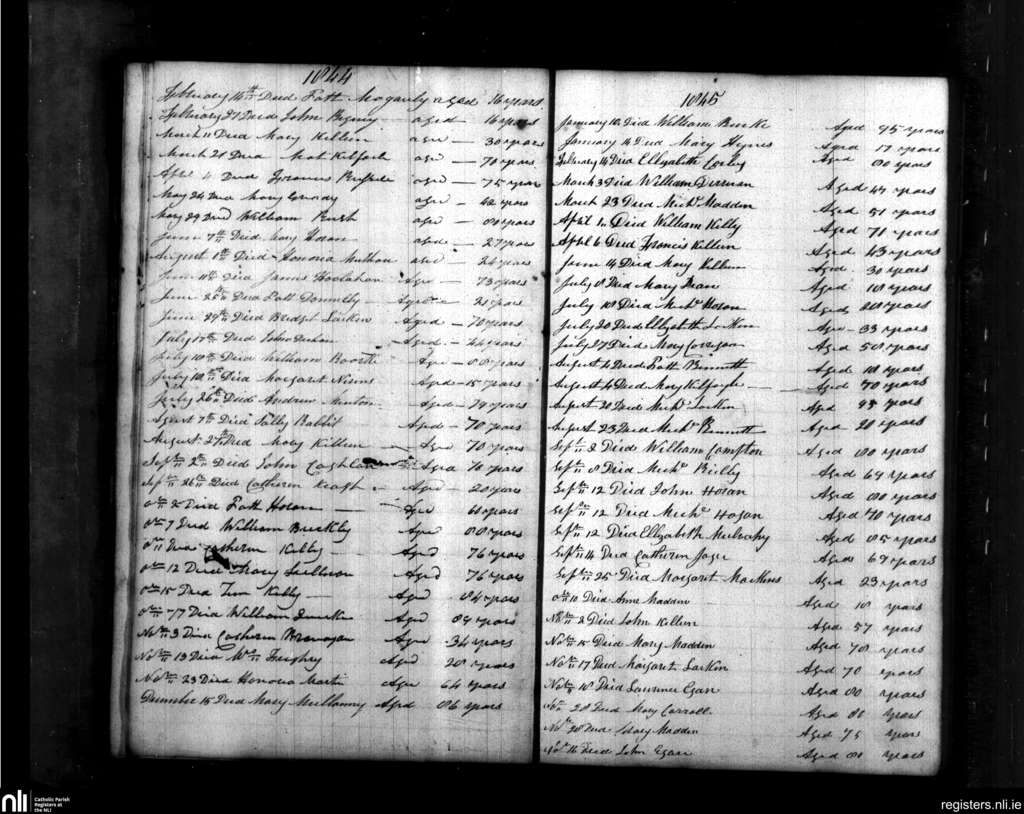 1844
February 16th Died Patt Mcganly aged 76 years
February 27 Died John aged 16 years
March 11 Died Mary Killeen age 30 years
March 21 Died Mat Kilfoyle age 70 years
April 4 Died Francis age 75 years
May 24 Died Mary age 42 years
May 29 Died William age 80 years
June 7th Died Mary Horan aged 27 years
August 1st Died Honora age 24 years
June 11th Died James Hoolahan Age 73 years
June 26th Died Patt Donnelly Aged 21 years
June 29th Died Bridget Larkin Aged 70 years
July 17th Died John Aged 44 years
July 10th Died William Age 88 years
July 10th Died Margaret Aged 15 years
July 26th Died Andrew Aged 79 years
August 7th Died Aged 70 years
August 27th Died Mary Killeen Age 70 years
Sept 2nd Died John Coghlan Aged 70 years
Sep 26th Died Catherin Keagh Aged 20 years
2 Died Patt Horan Age 60 years
7 Died William Buckley Aged 88 years
Died Catherin Kelly Aged 76 years
12 Died Mary Sullivan Aged 76 years
15 Died Tim Kelly Aged 84 years
17 Died William Aged 89 years
Nov 3 Died Catherin Age 34 years
Nov 13 Died Wm Aged 28 years
Nov 23 Died Honora Martin Age 64 years
December 15 Died Mary Mullowny Aged 86 years
1845
January 10 Died William Burke Aged 95 years
January 14 Died Mary Hynes Aged 17 years
February 14 Died Ellizabeth Aged 80 years
March 3 Died William Aged 44 years
March 23 Died Michl Madden Aged 51 years
April 1 Died William Kelly Aged 71 years
April 6 Died Francis Killeen Aged 63 years
June 14 Died Mary Killeen Aged 30 years
July 8 Died Mary Aged 18 years
July 18 Died Horan Aged 80 years
July 20 Died Ellizabeth Larkin Age 33 years
July 27 Died Mary Corrigan Aged 58 years
August 4 Died Patt Bennett Aged 18 years
August 4 Died Mary Kilfoyle Aged 70 years
August 20 Died Michl Larkin Aged 93 years
August 23 Died Michl Bennett Aged 20 years
Sept 2 Died William Compton Aged 80 years
Sept 8 Died Michl Reilly Aged 69 years
Sept 12 Died John Horan Aged 80 years
Sept 12 Died Michl Hogan Aged 70 years
Sept 12 Died Ellizabeth Mulreaky Aged 85 years
Sept 14 Died Catherin Aged 69 years
Sept 25 Died Margaret Aged 23 years
10 Died Anne Madden Aged 18 years
2 Died John Killeen Aged 57 years
Nov 15 Died Mary Madden Aged 70 years
Nov 17 Died Margaret Larkin Aged 70 years
Nov 18 Died Lawrence Egan Aged 80 years
Nov 28 Died Mary Carroll Aged years
28 Died Mary Madden Aged 75 years
16 Died John Egan Aged years
nli
Catholic Parish
Registers at
the NLI
registers.nli.ie